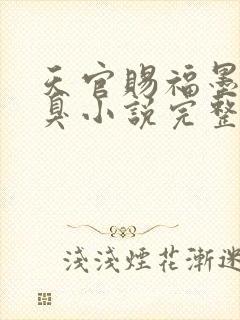 天官賜福墨
臭小說完整
淺淺煙花漸迷